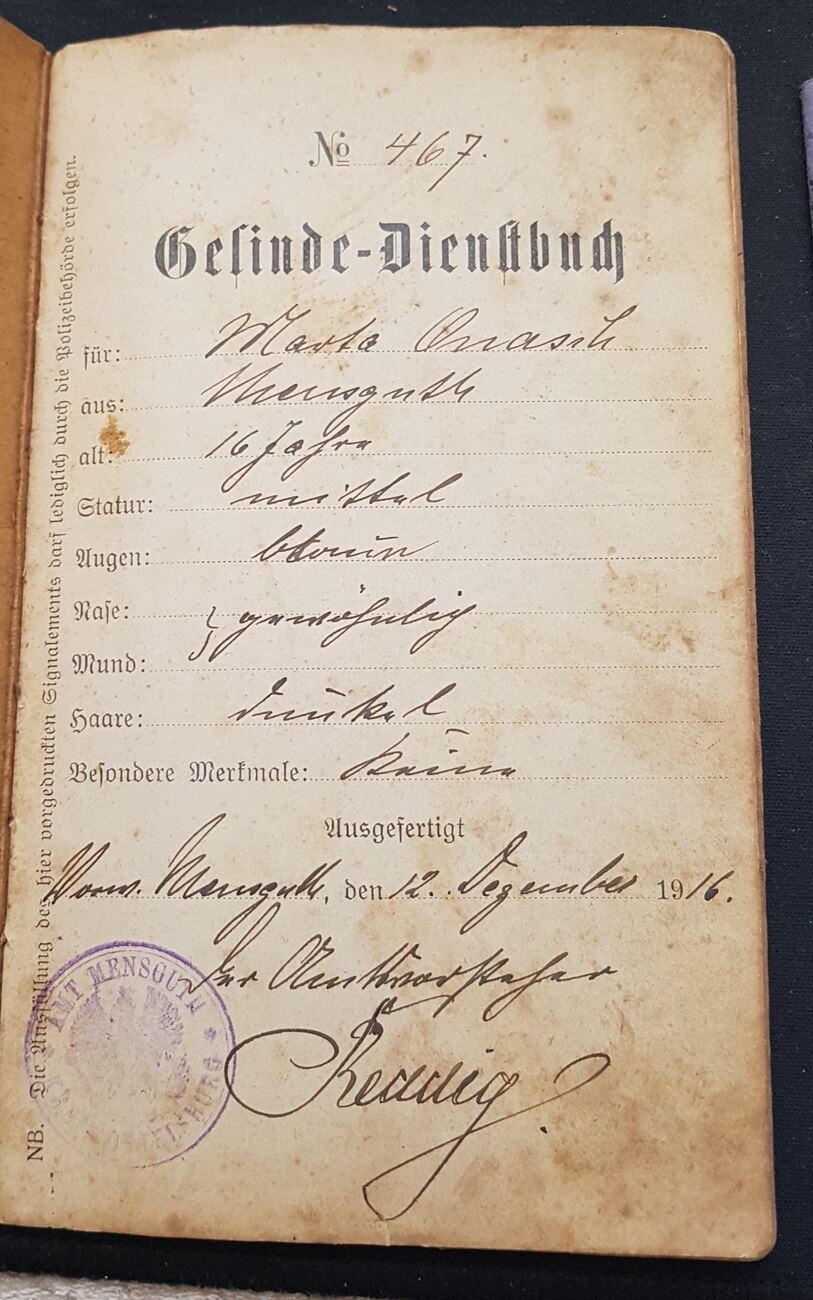 № 467.
Gesinde-Dienstbuch
für: Marta Onasch
aus: Mensguth
alt: 16 Jahre
Statur: mittel
Augen: braun
Nase: } gewöhnlich
Mund:
Haare: dunkel
Besondere Merkmale: keine
Ausgefertigt
Vorw. Mensguth, den 12. Dezember 1916.
Der Amtsvorsteher
Reddig
AMT MENSGUTH
NB. Die Ausfüllung des hier vorgedruckten Signalements darf lediglich durch die Polizeibehörde erfolgen.